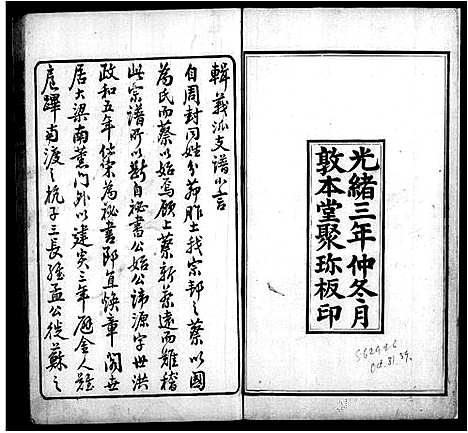 光緒三年仲冬月
敦本堂聚珍板印
562446
Oct. 31. 39.
輯義派支譜小言
自周封同姓分茆胙土我宗邦之蔡以國
為氏而蔡以始焉顧上蔡新蔡遠而難稽
此宗譜所以斷自秘書公始公諱源字世洪
政和五年仕宋為秘書郎直煥章閣世
居大梁南薰門外以建炎三年避金人難
扈蹕南渡之杭子三長孟公徙蘇之